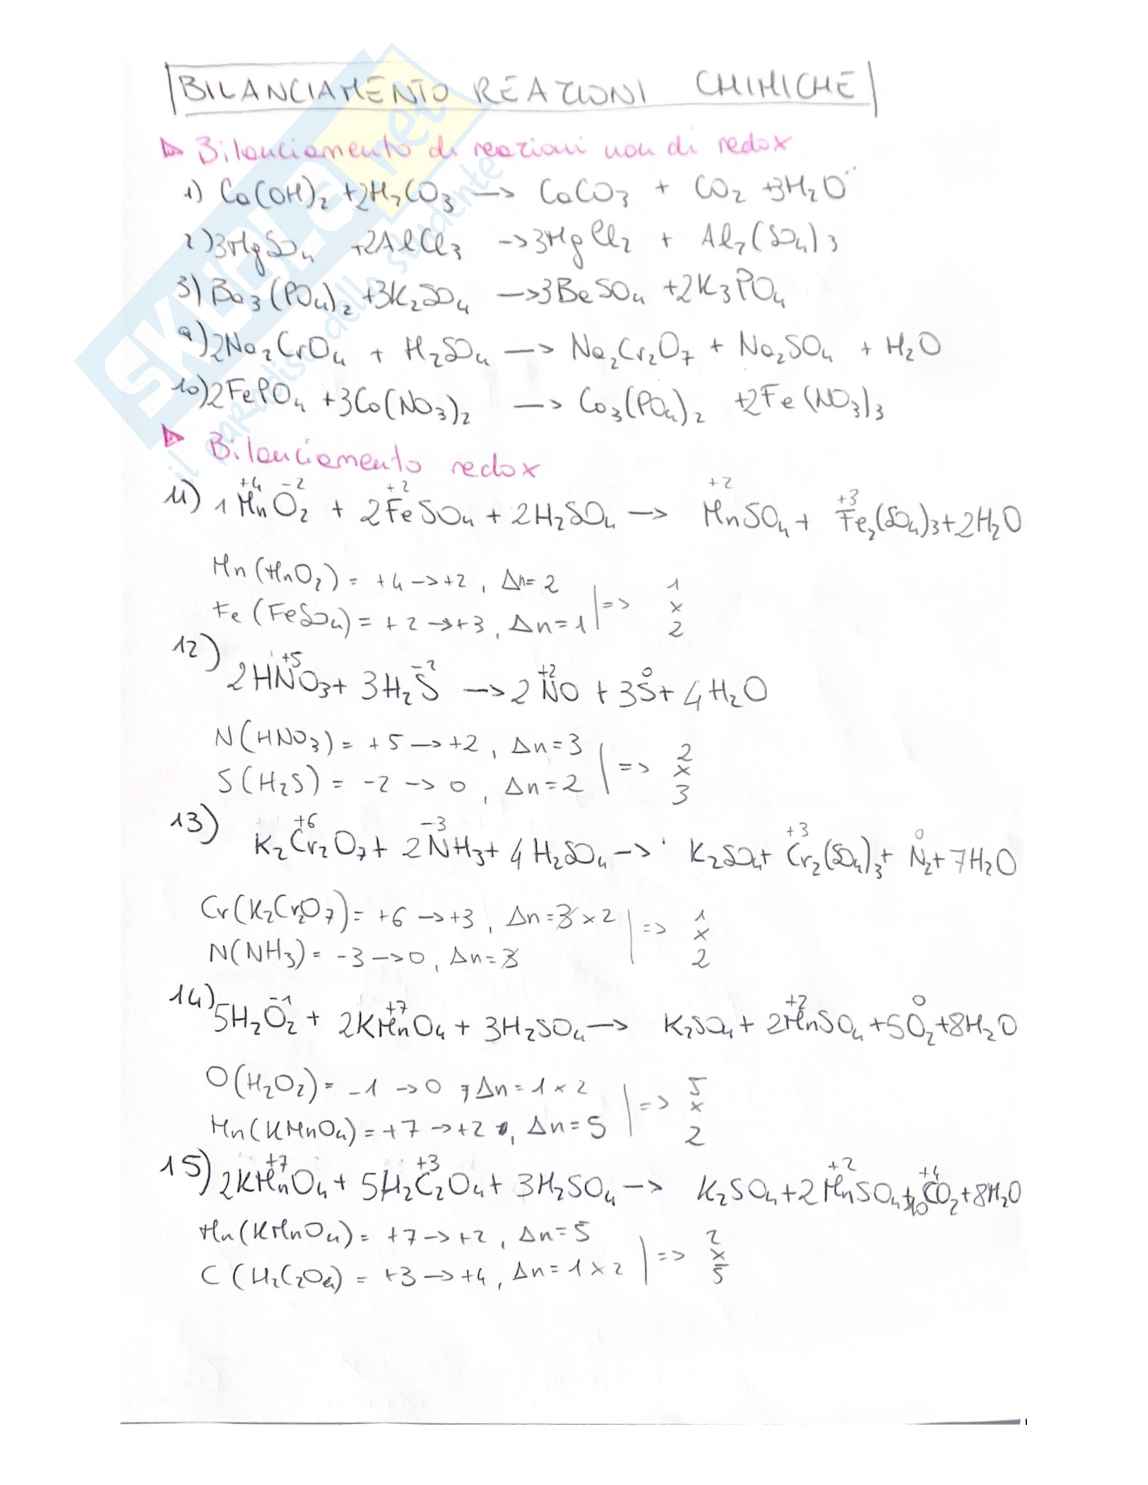 BILANCIAMENTO REAZIONI CHIMICHE
Bilanciamento di reazioni non di redox
1) Ca(OH)₂ + 2H₂CO₃ → CaCO₃ + CO₂ + 3H₂O
2) 3MgSO₄ + 2AlCl₃ → 3MgCl₂ + Al₂(SO₄)₃
3) Be₃(PO₄)₂ + 3K₂SO₄ → 3BeSO₄ + 2K₃PO₄
9) 2Na₂CrO₄ + H₂SO₄ → Na₂Cr₂O₇ + Na₂SO₄ + H₂O
10) 2FePO₄ + 3Co(NO₃)₂ → Co₃(PO₄)₂ + 2Fe(NO₃)₃
Bilanciamento redox
+4 -2 +2 +2 +3
11) 1MnO₂ + 2FeSO₄ + 2H₂SO₄ → MnSO₄ + Fe₂(SO₄)₃ + 2H₂O
Mn(MnO₂) = +4 → +2, Δn = 2 | => 1
x
Fe(FeSO₄) = +2 → +3, Δn = 1 2
+5 -2 +2 0
12) 2HNO₃ + 3H₂S → 2NO + 3S + 4H₂O
N(HNO₃) = +5 → +2, Δn = 3 | => 2
x
S(H₂S) = -2 → 0, Δn = 2 3
+6 -3 +3 0
13) K₂Cr₂O₇ + 2NH₃ + 4H₂SO₄ → K₂SO₄ + Cr₂(SO₄)₃ + N₂ + 7H₂O
Cr(K₂Cr₂O₇) = +6 → +3, Δn = 3 x 2 | => 1
x
N(NH₃) = -3 → 0, Δn = 3 2
-1 +7 +2 0
14) 5H₂O₂ + 2KMnO₄ + 3H₂SO₄ → K₂SO₄ + 2MnSO₄ + 5O₂ + 8H₂O
O(H₂O₂) = -1 → 0, Δn = 1 x 2 | => 5
x
Mn(KMnO₄) = +7 → +2, Δn = 5 2
+7 +3 +2 +4
15) 2KMnO₄ + 5H₂C₂O₄ + 3H₂SO₄ → K₂SO₄ + 2MnSO₄ + 10CO₂ + 8H₂O
Mn(KMnO₄) = +7 → +2, Δn = 5 | => 2
x
C(H₂C₂O₄) = +3 → +4, Δn = 1 x 2 5
SKUOLA.net
il paradiso dello studente